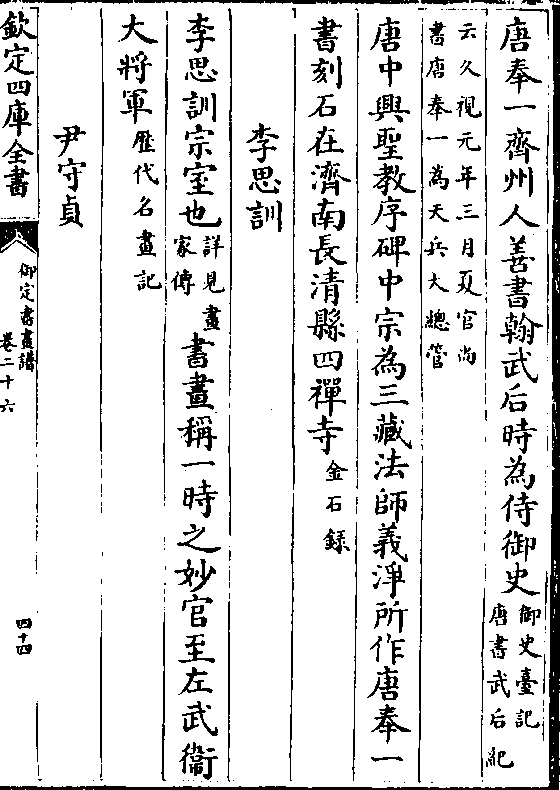 唐奉一齊州人善書翰武后時為侍御史御史臺記唐書武后紀
云久視元年三月夏官尚書唐奉一為天兵大總管
唐中興聖教序碑中宗為三藏法師義淨所作唐奉一
書刻石在濟南長清縣四禪寺金石錄
李思訓
李思訓宗室也詳見畫家傳書畫稱一時之妙官至左武衞
大將軍歷代名畫記
尹守貞
欽定四庫全書
御定書畫譜
卷二十六
四十四